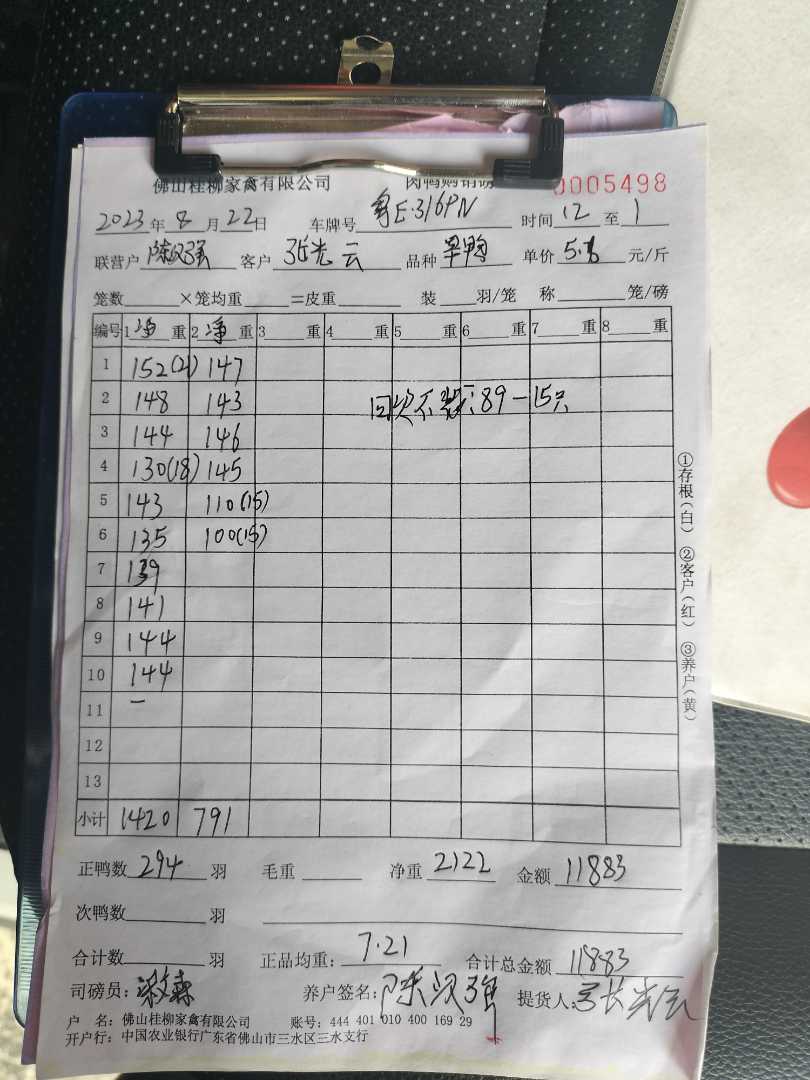 佛山桂柳家禽有限公司 肉鸭购销 0005498
2023年8月22日 车牌号 粤E·316PN 时间 12 至 1
联营户 陈汉强 客户 张光云 品种 单价 5.6 元/斤
笼数 ×笼均重 =皮重 装 羽/笼 称 笼/磅
编号 1 净 重 2 净 重 3 重 4 重 5 重 6 重 7 重 8 重
1 152(21) 147
2 148 143 回 不 :89-15只
3 144 146
4 130(18) 145
5 143 110(15)
6 135 100(15)
7 139
8 141
9 144
10 144
11 一
12
13
小计 1420 791
正鸭数 294 羽 毛重 净重 2122 金额 11883
次鸭数 羽
合计数 羽 正品均重: 7.21 合计总金额 11883
司磅员: 养户签名: 陈汉强 提货人: 张光云
户 名: 佛山桂柳家禽有限公司 账号: 444 401 010 400 169 29
开户行: 中国农业银行广东省佛山市三水区三水支行
①存根(白) ②客户(红) ③养户(黄)